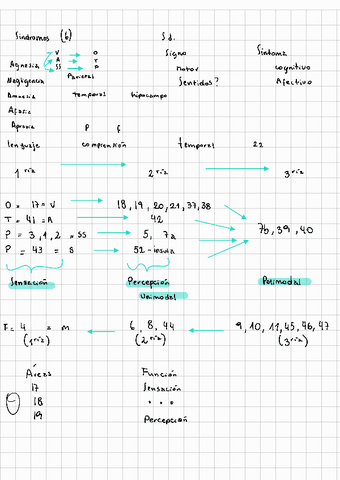 Síndromes (6) Sd.
V O Signo Síntoma
Agnosia A T
SS P Motor cognitivo
Negligencia Parietal Sentidos? Afectivo
Amnesia temporal hipocampo
Afasia
Apraxia P F
lenguaje comprensión temporal 22
1ria 2ria 3ria
O = 17 = V 18, 19, 20, 21, 37, 38
T = 41 = A 42
P = 3, 1, 2 = SS 5, 7a 7b, 39, 40
P = 43 = G 52-insula
Sensación Percepción Polimodal
Unimodal
F = 4 = M 6, 8, 44 9, 10, 11, 45, 46, 47
(1ria) (2ria) (3ria)
Áreas Función
17 Sensación
18 . . .
19 Percepción